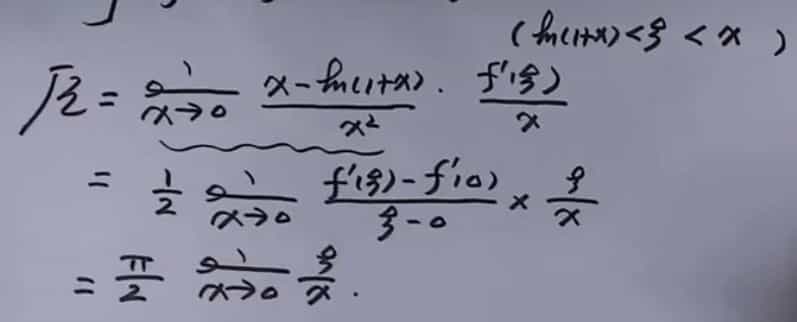 (ln(1+x)<ξ<x)
原 = lim x→0 x-ln(1+x) / x² · f'(ξ) / x
= 1/2 lim x→0 f'(ξ)-f'(0) / ξ-0 × ξ/x
= π/2 lim x→0 ξ/x.